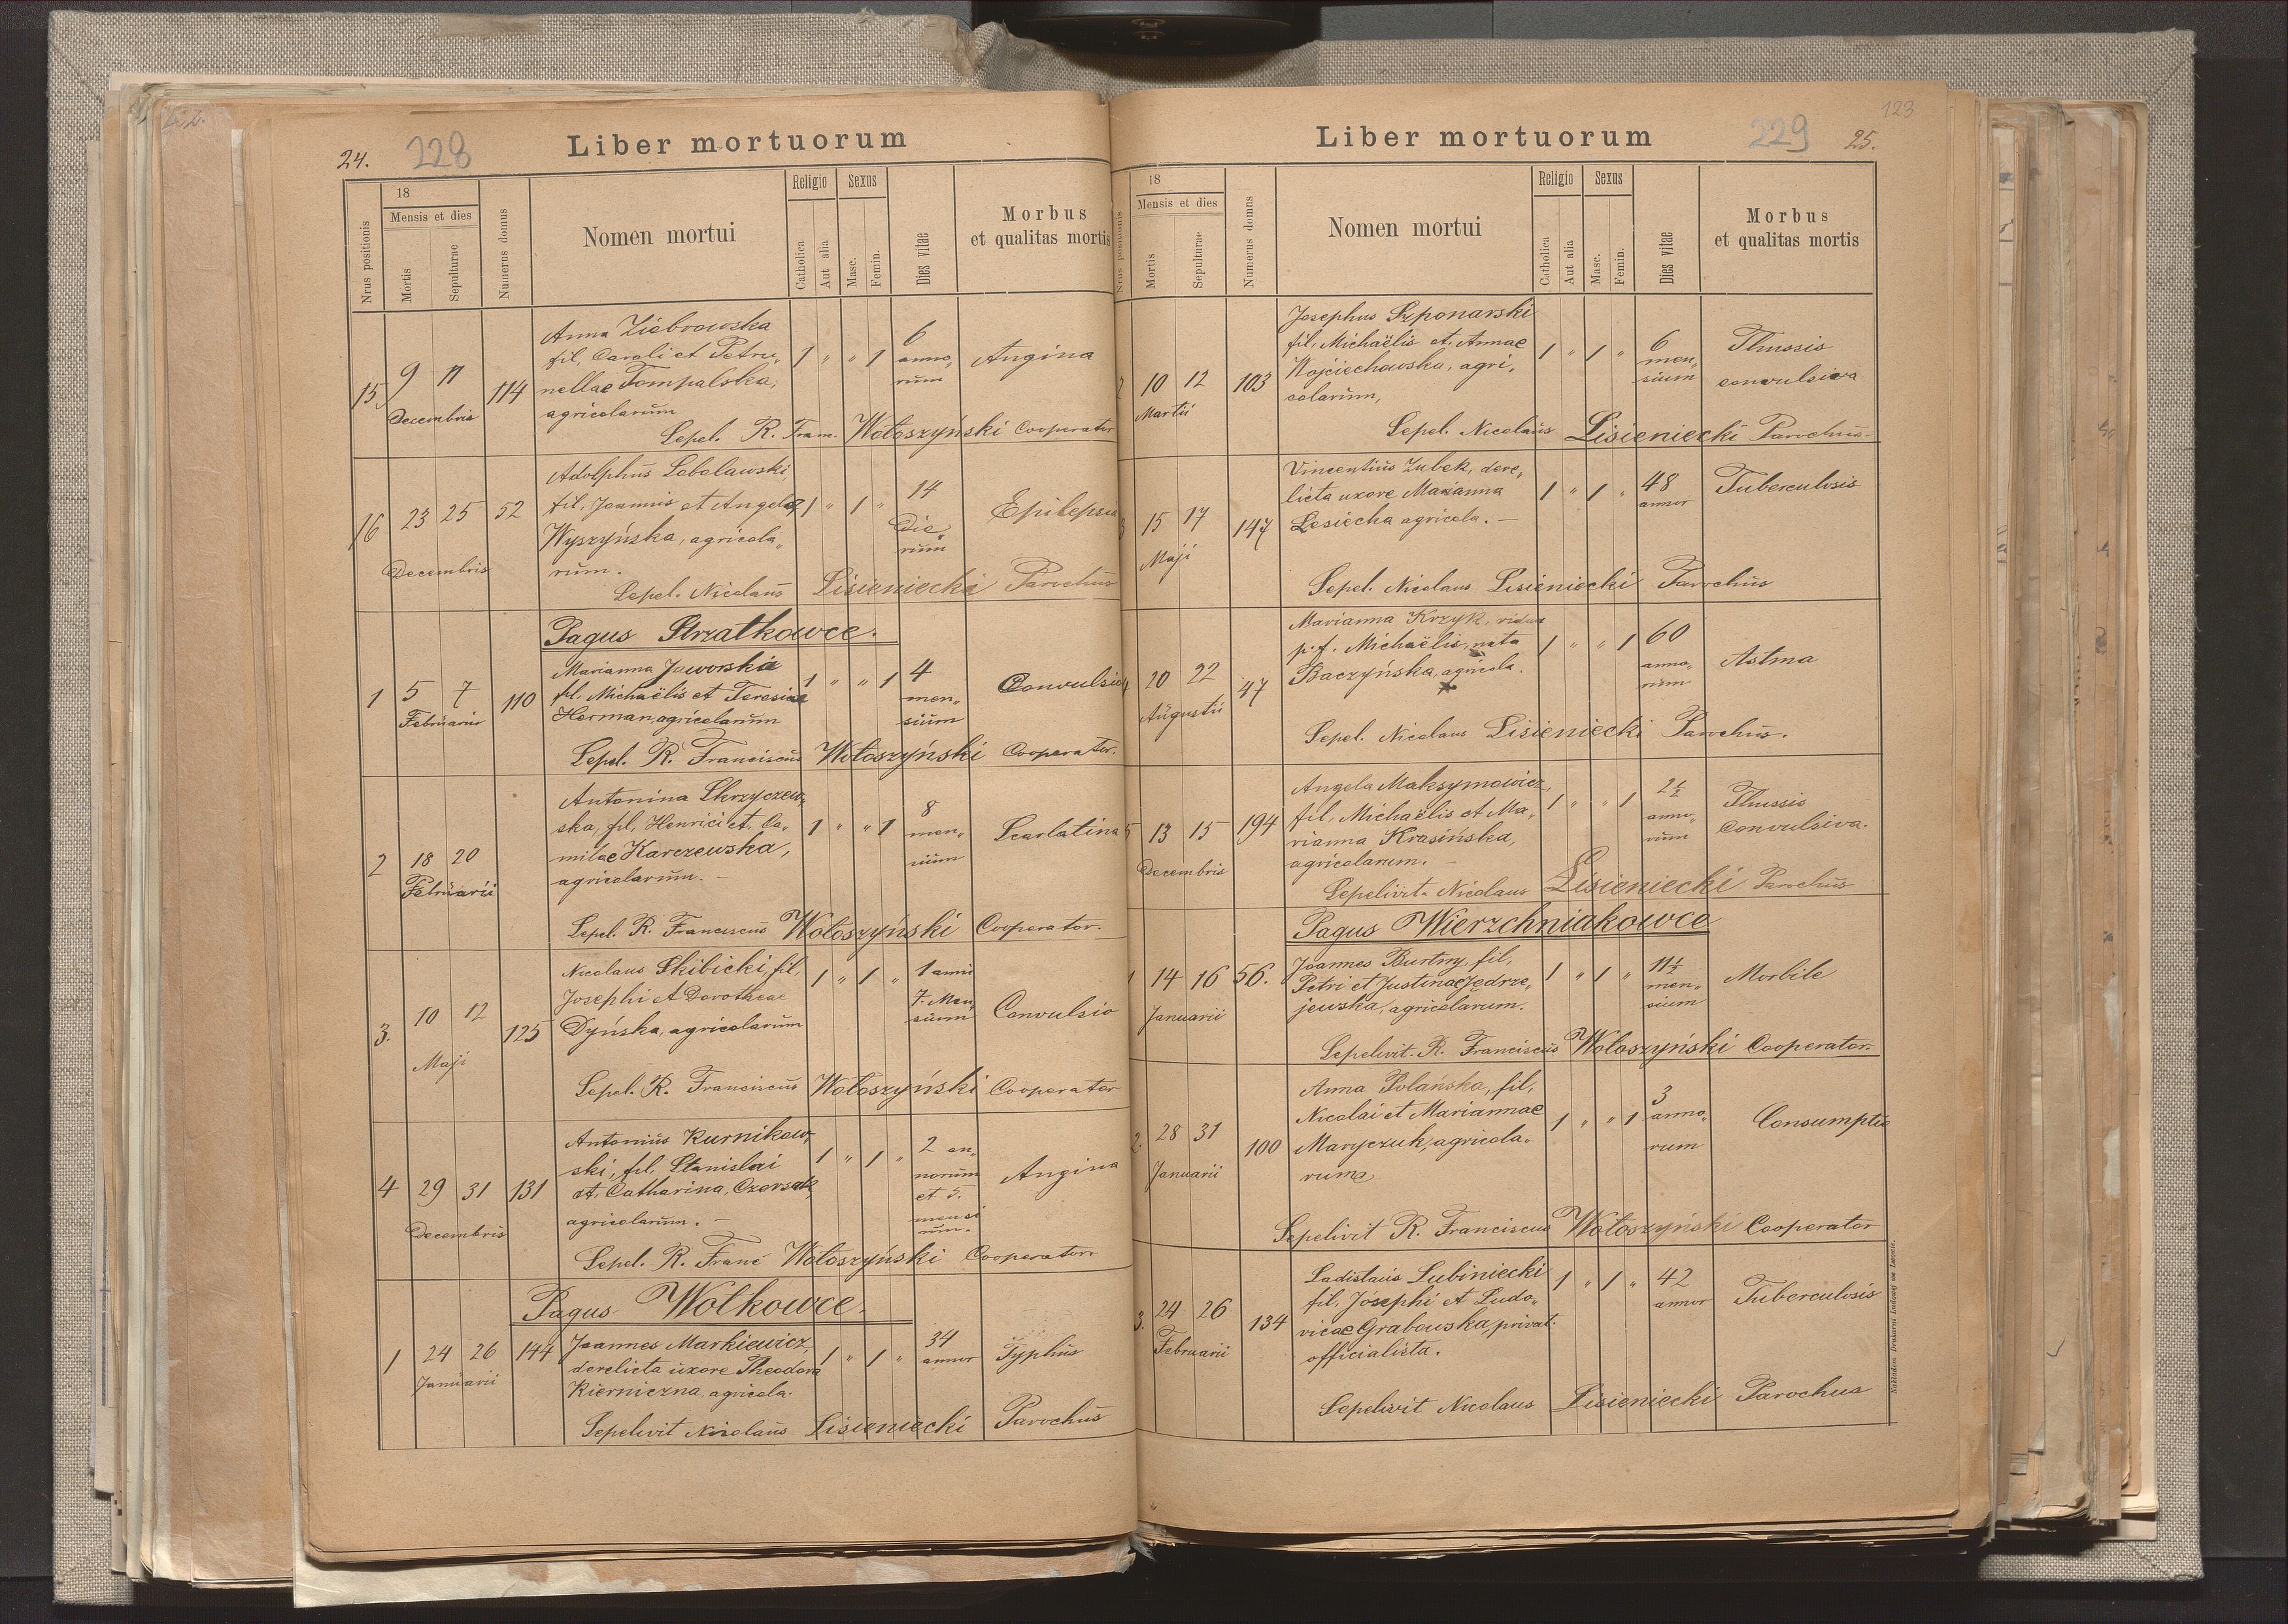 24.
228
Liber mortuorum
Nrus positionis
18
Mensis et dies
Mortis
Sepulturae
Numerus domus
Nomen mortui
Religio
Catholica
Aut alia
Sexus
Masc.
Femin.
Dies vitae
Morbus
et qualitas mortis
15
9 11
Decembris
114
Anna Ziebrowska
fil. Caroli et Petru„
nellae Tompalska,
agricolarum
1 „ „ 1
6
anno„
rum
Angina
Sepel. R. Franc. Wołoszyński Cooperator
16
23 25
Decembris
52
Adolphus Sobolawski,
fil. Joannis et Angela
Wyszyńska, agricola„
rum.
1 „ 1 „
14
Die„
rum
Epilepsia
Sepel. Nicolaus Lisieniecki Parochus
Pagus Strzałkowce.
1
5 7
Februarii
110
Marianna Jaworska
fil. Michaëlis et Teresiae
Herman, agricolarum
1 „ „ 1
4
men„
sium
Convulsio
Sepel. R. Franciscus Wołoszyński Cooperator.
2
18 20
Februarii
Antonina Skrzyczew„
ska, fil. Henrici et Ca„
milae Karczewska,
agricolarum. —
1 „ „ 1
8
men„
sium
Scarlatina
Sepel. R. Franciscus Wołoszyński Cooperator.
3.
10 12
Maji
125
Nicolaus Skibicki, fil.
Josephi et Dorotheae
Dyńska, agricolarum
1 „ 1 „
1 anni
7. Men
sium
Convulsio
Sepel. R. Franciscus Wołoszyński Cooperator
4
29 31
Decembris
131
Antonius Kurnikow„
ski, fil. Stanislai
et. Catharina, Czerszak
agricolarum. —
1 „ 1 „
2 an„
norum
et 5.
mensi
um.
Angina
Sepel. R. Franc Wołoszyński Cooperator
Pagus Wołkowce.
1
24 26
Januarii
144
Joannes Markiewicz,
derelicta uxore Theodora
Kierniczna, agricola.
1 „ 1 „
34
annor
Typhus
Sepelivit Nicolaus Lisieniecki Parochus
123
Liber mortuorum
229
25.
Nrus positionis
18
Mensis et dies
Mortis
Sepulturae
Numerus domus
Nomen mortui
Religio
Catholica
Aut alia
Sexus
Masc.
Femin.
Dies vitae
Morbus
et qualitas mortis
2
10 12
Martii
103
Josephus Szponarski
fil. Michaëlis et. Annae
Wojciechowska, agri„
colarum,
1 „ 1 „
6
men„
sium
Thussis
convulsiva
Sepel. Nicolaus Lisieniecki Parochus
3
15 17
Maji
147
Vincentius Zubek, dere„
licta uxore Marianna
Lesiecka agricola. —
1 „ 1 „
48
annor
Tuberculosis
Sepel. Nicolaus Lisieniecki Parochus
4
20 22
Augusti
47
Marianna Krzyk, vidua
p. f. Michaëlis, nata
Baczyńska, agricola.
1 „ „ 1
60
anno„
rum
Astma
Sepel. Nicolaus Lisieniecki Parochus.
5
13 15
Decembris
194
Angela Maksymowicz,
fil. Michaëlis et Ma„
rianna Krasińska,
agricolarum. —
1 „ „ 1
2½
anno„
rum
Thussis
Convulsiva.
Sepelivit. Nicolaus Lisieniecki Parochus
Pagus Wierzchniakowce
1
14 16
Januarii
56.
Joannes Burtny, fil.
Petri et Justinae Jędrze„
jewska, agricolarum.
1 „ 1 „
11½
men„
sium
Morbile
Sepelivit. R. Franciscus Wołoszyński Cooperator.
2.
28 31
Januarii
100
Anna Polańska, fil.
Nicolai et Mariannae
Maryczuk, agricola„
rum
1 „ „ 1
3
anno„
rum
Consumptio
Sepelivit R. Franciscus Wołoszyński Cooperator
3.
24 26
Februarii
134
Ladislaus Lubiniecki
fil. Josephi et Ludo„
vicae Grabowska, privat.
officialista.
1 „ 1 „
42
annor
Tuberculosis
Sepelivit Nicolaus Lisieniecki Parochus
Nakładem Drukarni Ludowej we Lwowie.